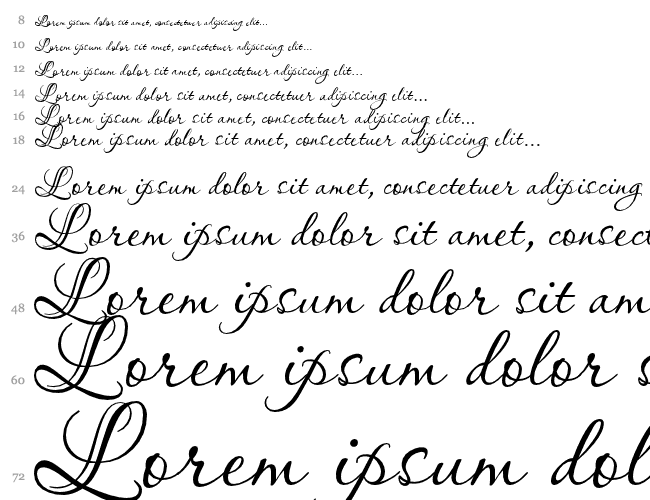 8 Lorem ipsum dolor sit amet, consectetuer adipiscing elit...
10 Lorem ipsum dolor sit amet, consectetuer adipiscing elit...
12 Lorem ipsum dolor sit amet, consectetuer adipiscing elit...
14 Lorem ipsum dolor sit amet, consectetuer adipiscing elit...
16 Lorem ipsum dolor sit amet, consectetuer adipiscing elit...
18 Lorem ipsum dolor sit amet, consectetuer adipiscing elit...
24 Lorem ipsum dolor sit amet, consectetuer adipiscing
36 Lorem ipsum dolor sit amet, consect
48 Lorem ipsum dolor sit am
60 Lorem ipsum dolor s
72 Lorem ipsum dol